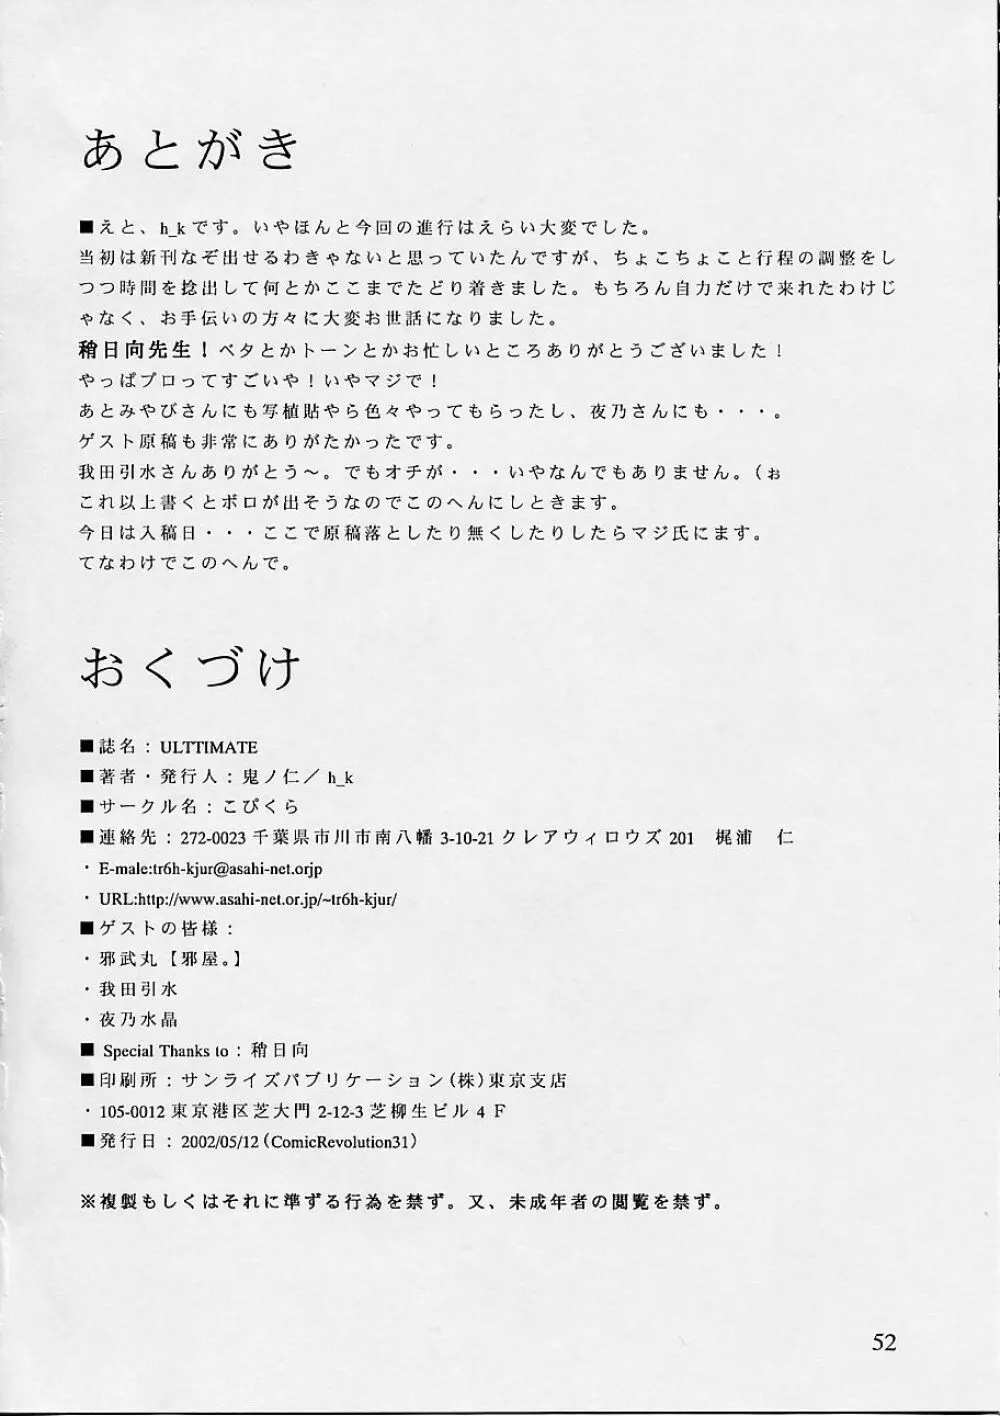 あとがき
■えと、h_kです。いやほんと今回の進行はえらい大変でした。
当初は新刊なぞ出せるわきゃないと思っていたんですが、ちょこちょこと行程の調整をし
つつ時間を捻出して何とかここまでたどり着きました。もちろん自力だけで来れたわけじ
ゃなく、お手伝いの方々に大変お世話になりました。
稍日向先生！ベタとかトーンとかお忙しいところありがとうございました！
やっぱプロってすごいや！いやマジで！
あとみやびさんにも写植貼やら色々やってもらったし、夜乃さんにも・・・。
ゲスト原稿も非常にありがたかったです。
我田引水さんありがとう～。でもオチが・・・いやなんでもありません。（ぉ
これ以上書くとボロが出そうなのでこのへんにしときます。
今日は入稿日・・・ここで原稿落としたり無くしたりしたらマジ氏にます。
てなわけでこのへんで。
おくづけ
■誌名：ULTTIMATE
■著者・発行人：鬼ノ仁／h_k
■サークル名：こぴくら
■連絡先：272-0023 千葉県市川市南八幡 3-10-21 クレアウィロウズ 201　梶浦　仁
・E-male:tr6h-kjur@asahi-net.orjp
・URL:http://www.asahi-net.or.jp/~tr6h-kjur/
■ゲストの皆様：
・邪武丸【邪屋。】
・我田引水
・夜乃水晶
■ Special Thanks to：稍日向
■印刷所：サンライズパブリケーション（株）東京支店
・105-0012 東京港区芝大門 2-12-3 芝柳生ビル 4 F
■発行日：2002/05/12（ComicRevolution31）
※複製もしくはそれに準ずる行為を禁ず。又、未成年者の閲覧を禁ず。
52